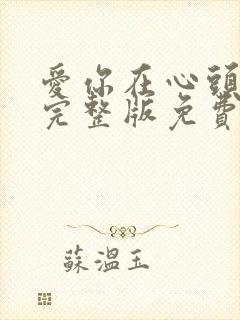 愛你在心頭
完整版免費
蘇溫玉